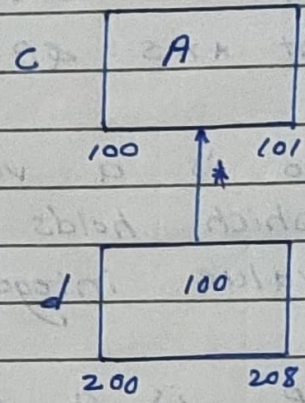 C A
100 101
*
d 100
200 208